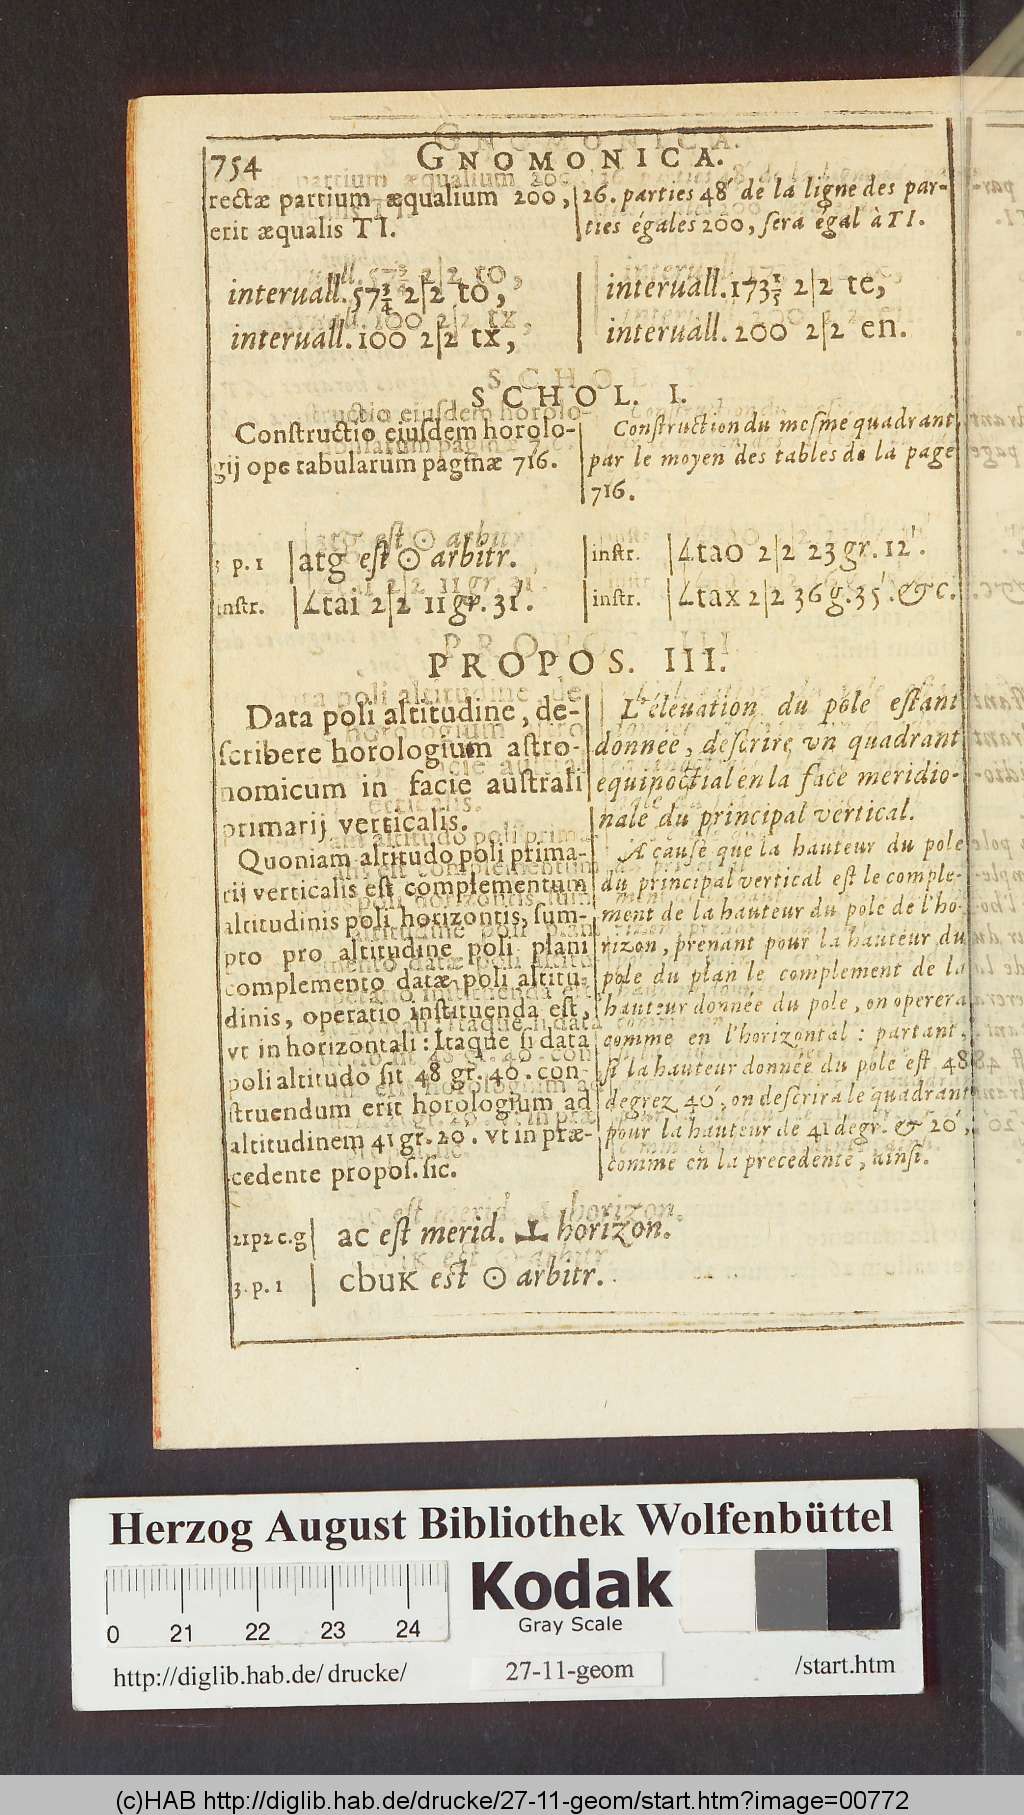 754 GNOMONICA.
rectæ partium æqualium 200,
erit æqualis TI.
26. parties 48′ de la ligne des par-
ties égales 200, ſera égal à TI.
interuall. 57¾ 2|2 to,
interuall. 100 2|2 tx,
interuall. 173⅕ 2|2 te,
interuall. 200 2|2 en.
SCHOL. I.
Conſtructio ejuſdem horolo-
gij ope tabularum paginæ 716.
Conſtruction du meſme quadrant
par le moyen des tables de la page
716.
3 p. 1 | atg eſt ⊙ arbitr.
inſtr. | ∠tai 2|2 11 gr. 31′.
inſtr. | ∠tao 2|2 23 gr. 12′.
inſtr. | ∠tax 2|2 36 g. 35′. &c.
PROPOS. III.
Data poli altitudine, de-
ſcribere horologium aſtro-
nomicum in facie auſtrali
primarij verticalis.
Quoniam altitudo poli prima-
rij verticalis eſt complementum
altitudinis poli horizontis, ſum-
pto pro altitudine poli plani
complemento datæ poli altitu-
dinis, operatio inſtituenda eſt,
vt in horizontali: Itaque ſi data
poli altitudo ſit 48 gr. 40. con-
ſtruendum erit horologium ad
altitudinem 41 gr. 20. vt in præ-
cedente propoſ. ſic.
L'éleuation du pole eſtant
donnée, deſcrire vn quadrant
equinoctial en la face meridio-
nale du principal vertical.
A cauſe que la hauteur du pole
du principal vertical eſt le comple-
ment de la hauteur du pole de l'ho-
rizon, prenant pour la hauteur du
pole du plan le complement de la
hauteur donnée du pole, on operera
comme en l'horizontal: partant,
ſi la hauteur donnée du pole eſt 48
degrez 40′, on deſcrira le quadrant
pour la hauteur de 41 degr. & 20′,
comme en la precedente, ainſi.
21p2c.g | ac eſt merid. ⊥ horizon.
3. p. 1 | cbuk est ⊙ arbitr.
Herzog August Bibliothek Wolfenbüttel
0 21 22 23 24
Kodak
Gray Scale
http://diglib.hab.de/drucke/ 27-11-geom /start.htm
(c)HAB http://diglib.hab.de/drucke/27-11-geom/start.htm?image=00772